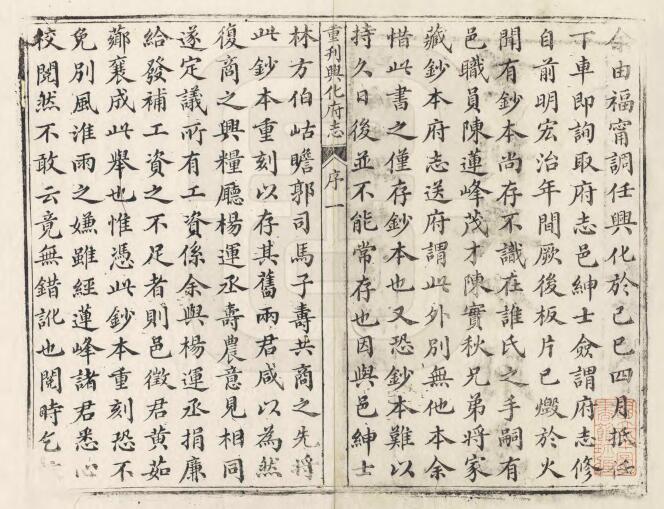 余由福甯調任興化於己巳四月抵任
下車即詢取府志邑紳士僉謂府志修
自前明宏治年間厥後板片已燬於火
聞有鈔本尚存不識在誰氏之手嗣有
邑職員陳蓮峰茂才陳實秋兄弟將家
藏鈔本府志送府謂此外別無他本余
惜此書之僅存鈔本也又恐鈔本難以
持久日後並不能常存也因與邑紳士
重刊興化府志 序 一
林方伯岵瞻郭司馬子壽共商之先將
此鈔本重刻以存其舊兩君咸以為然
復商之興糧廳楊運丞壽農意見相同
遂定議所有工資係余與楊運丞捐廉
給發補工資之不足者則邑徵君黄茹
薌襄成此舉也惟憑此鈔本重刻恐不
免別風淮雨之嫌雖經蓮峰諸君悉心
校閱然不敢云竟無錯訛也閱時乞